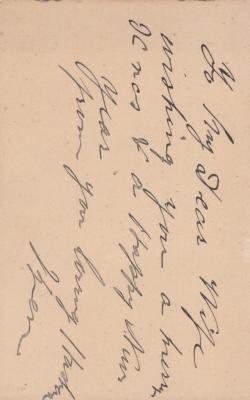 To My Dear Wife
wishing you a merry
Xmas & a Happy New
Year
from you loving Hubby